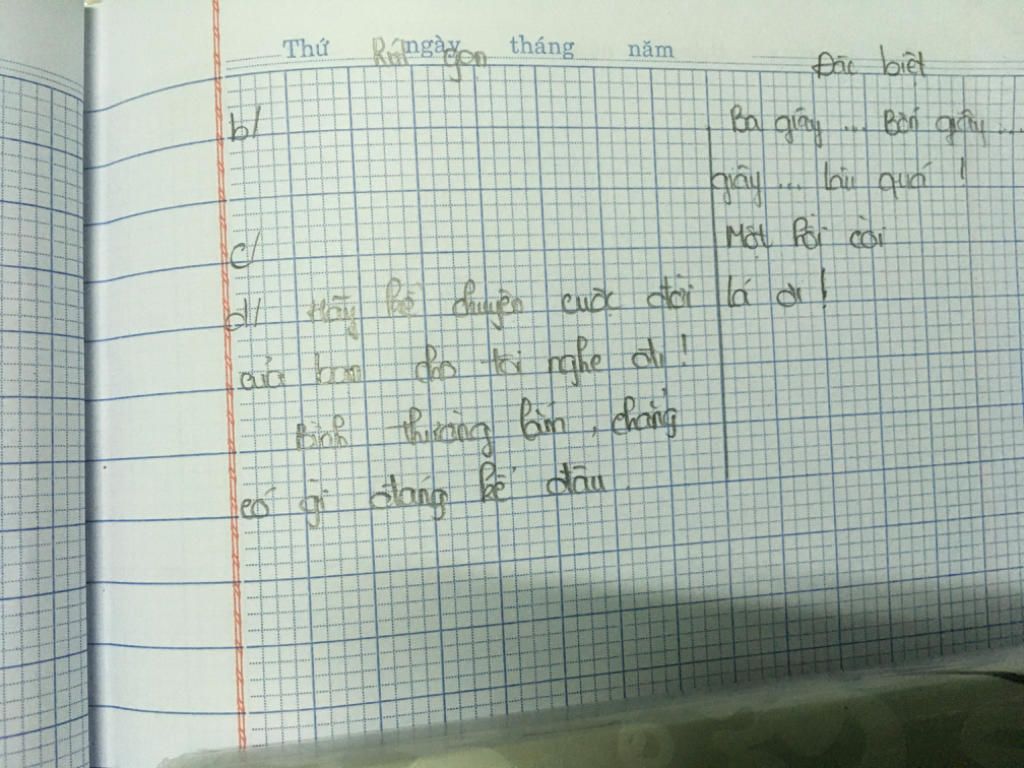 Thứ ngày tháng năm
Rút gọn Đặc biệt
b/ Ba giây ... Bốn giây ...
giây ... lâu quá !
c/ Một hồi còi
d/ Hãy kể chuyện cuộc đời lá đi !
của bạn cho tôi nghe đi !
Bình thường lắm , chẳng
có gì đáng kể đâu .